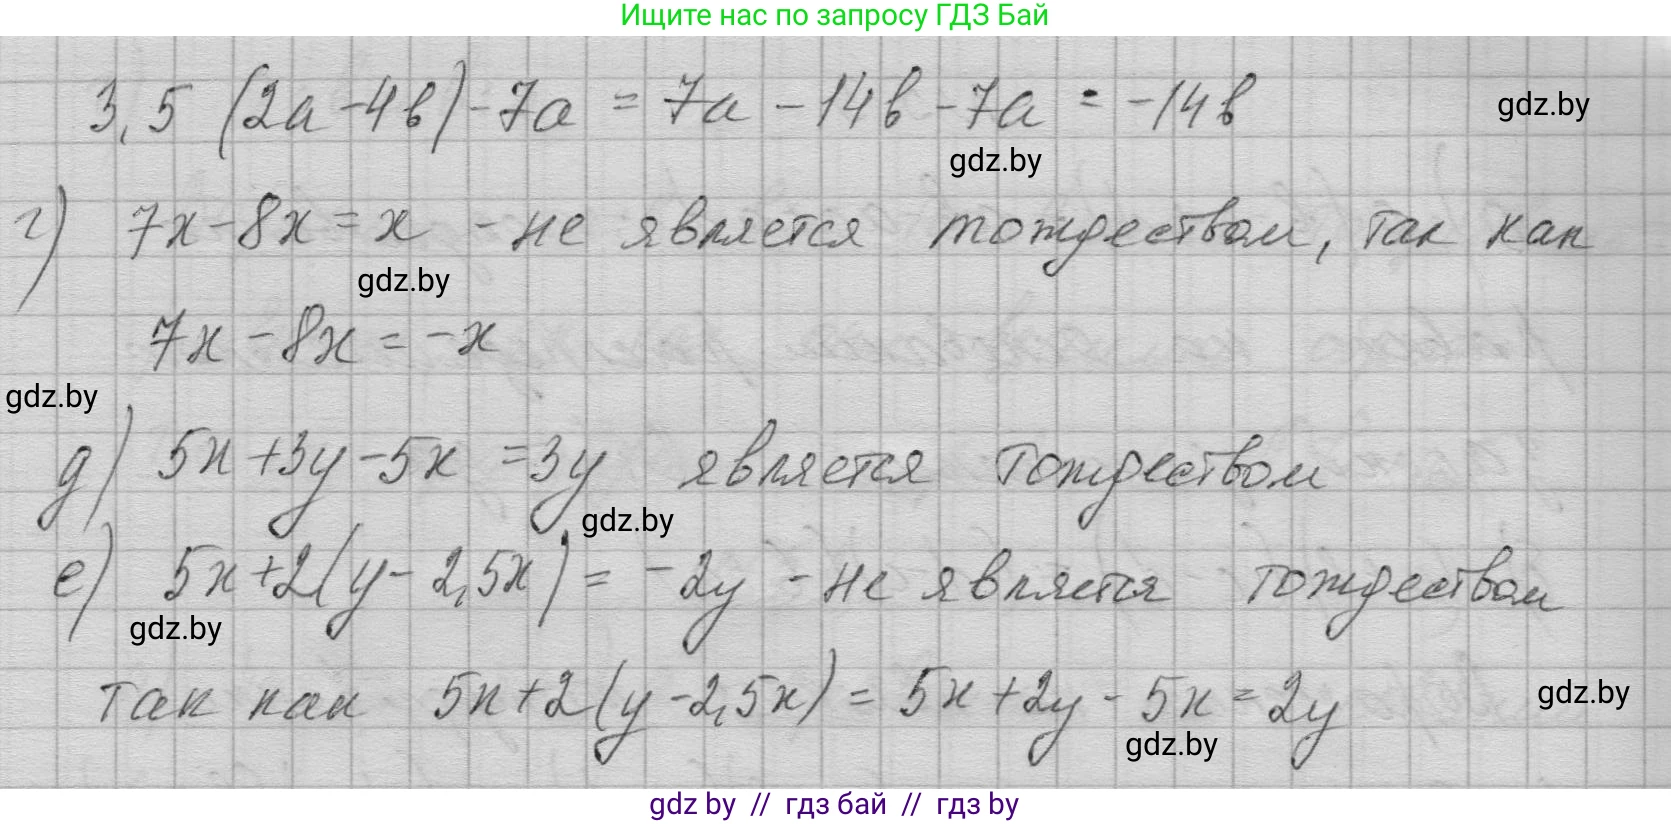 Ищите нас по запросу ГДЗ Бай
3,5 (2а - 4в) - 7а = 7а - 14в - 7а = -14в
gdz.by
gdz.by
г) 7х - 8х = х - не является тождеством, так как
gdz.by
7х - 8х = -х
gdz.by
д) 5х + 3у - 5х = 3у является тождеством
gdz.by
е) 5х + 2(у - 2,5х) = -2у - не является тождеством
gdz.by
так как 5х + 2(у - 2,5х) = 5х + 2у - 5х = 2у
gdz.by
gdz.by
gdz by // гдз бай // гдз by